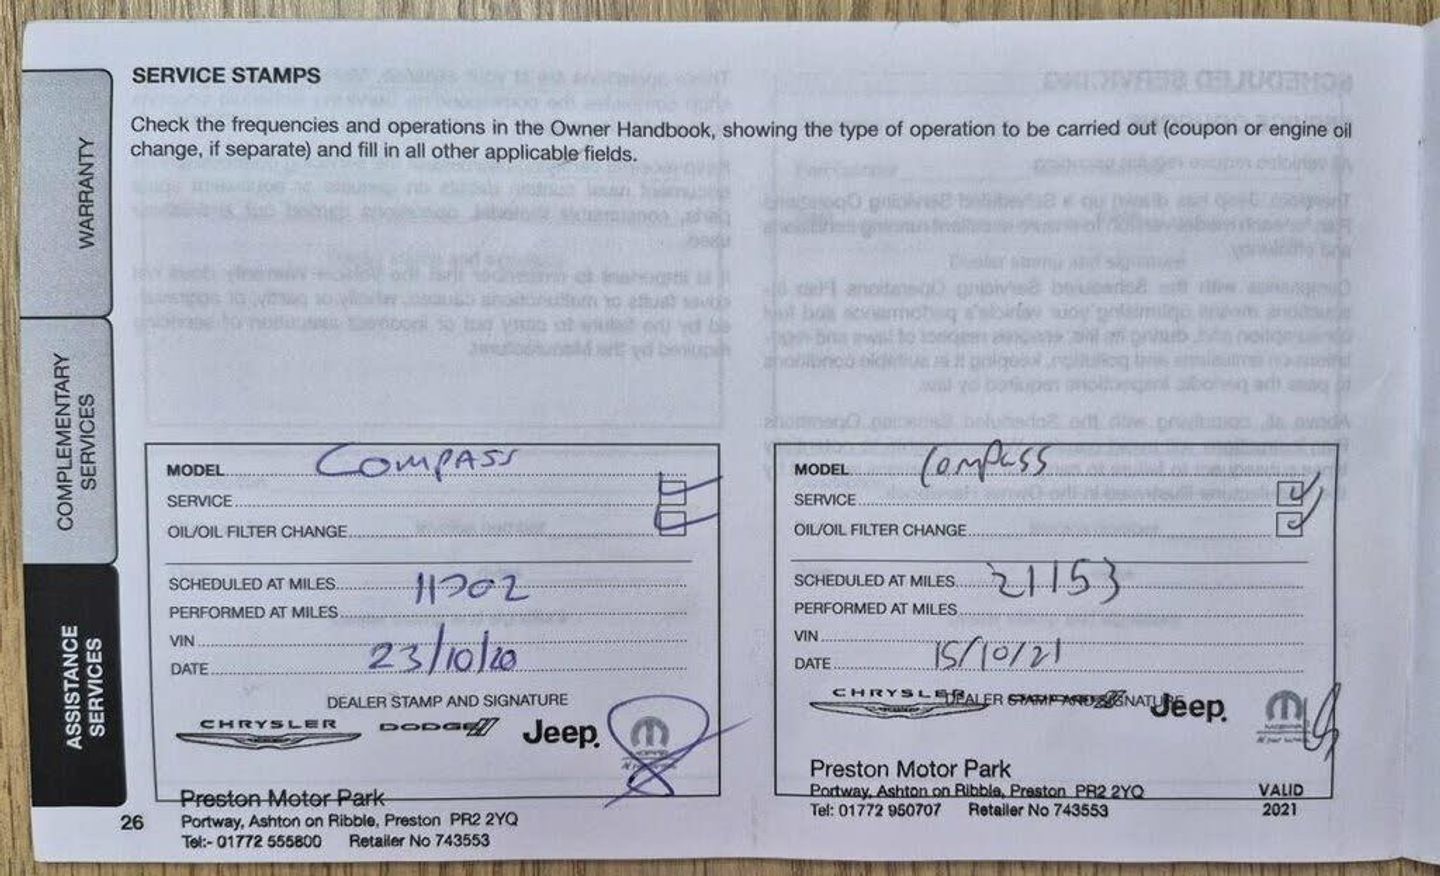 SERVICE STAMPS
Check the frequencies and operations in the Owner Handbook, showing the type of operation to be carried out (coupon or engine oil
change, if separate) and fill in all other applicable fields.
WARRANTY
COMPLEMENTARY
SERVICES
ASSISTANCE
SERVICES
MODEL COMPASS
SERVICE
OIL/OIL FILTER CHANGE
SCHEDULED AT MILES 11702
PERFORMED AT MILES
VIN
DATE 23/10/20
DEALER STAMP AND SIGNATURE
CHRYSLER DODGE Jeep
Preston Motor Park
Portway, Ashton on Ribble, Preston PR2 2YQ
Tel:- 01772 555800 Retailer No 743553
MODEL Compass
SERVICE
OIL/OIL FILTER CHANGE
SCHEDULED AT MILES 21153
PERFORMED AT MILES
VIN
DATE 15/10/21
DEALER STAMP AND SIGNATURE
CHRYSLER Jeep
Preston Motor Park
Portway, Ashton on Ribble, Preston PR2 2YQ VALID
Tel: 01772 950707 Retailer No 743553 2021
26